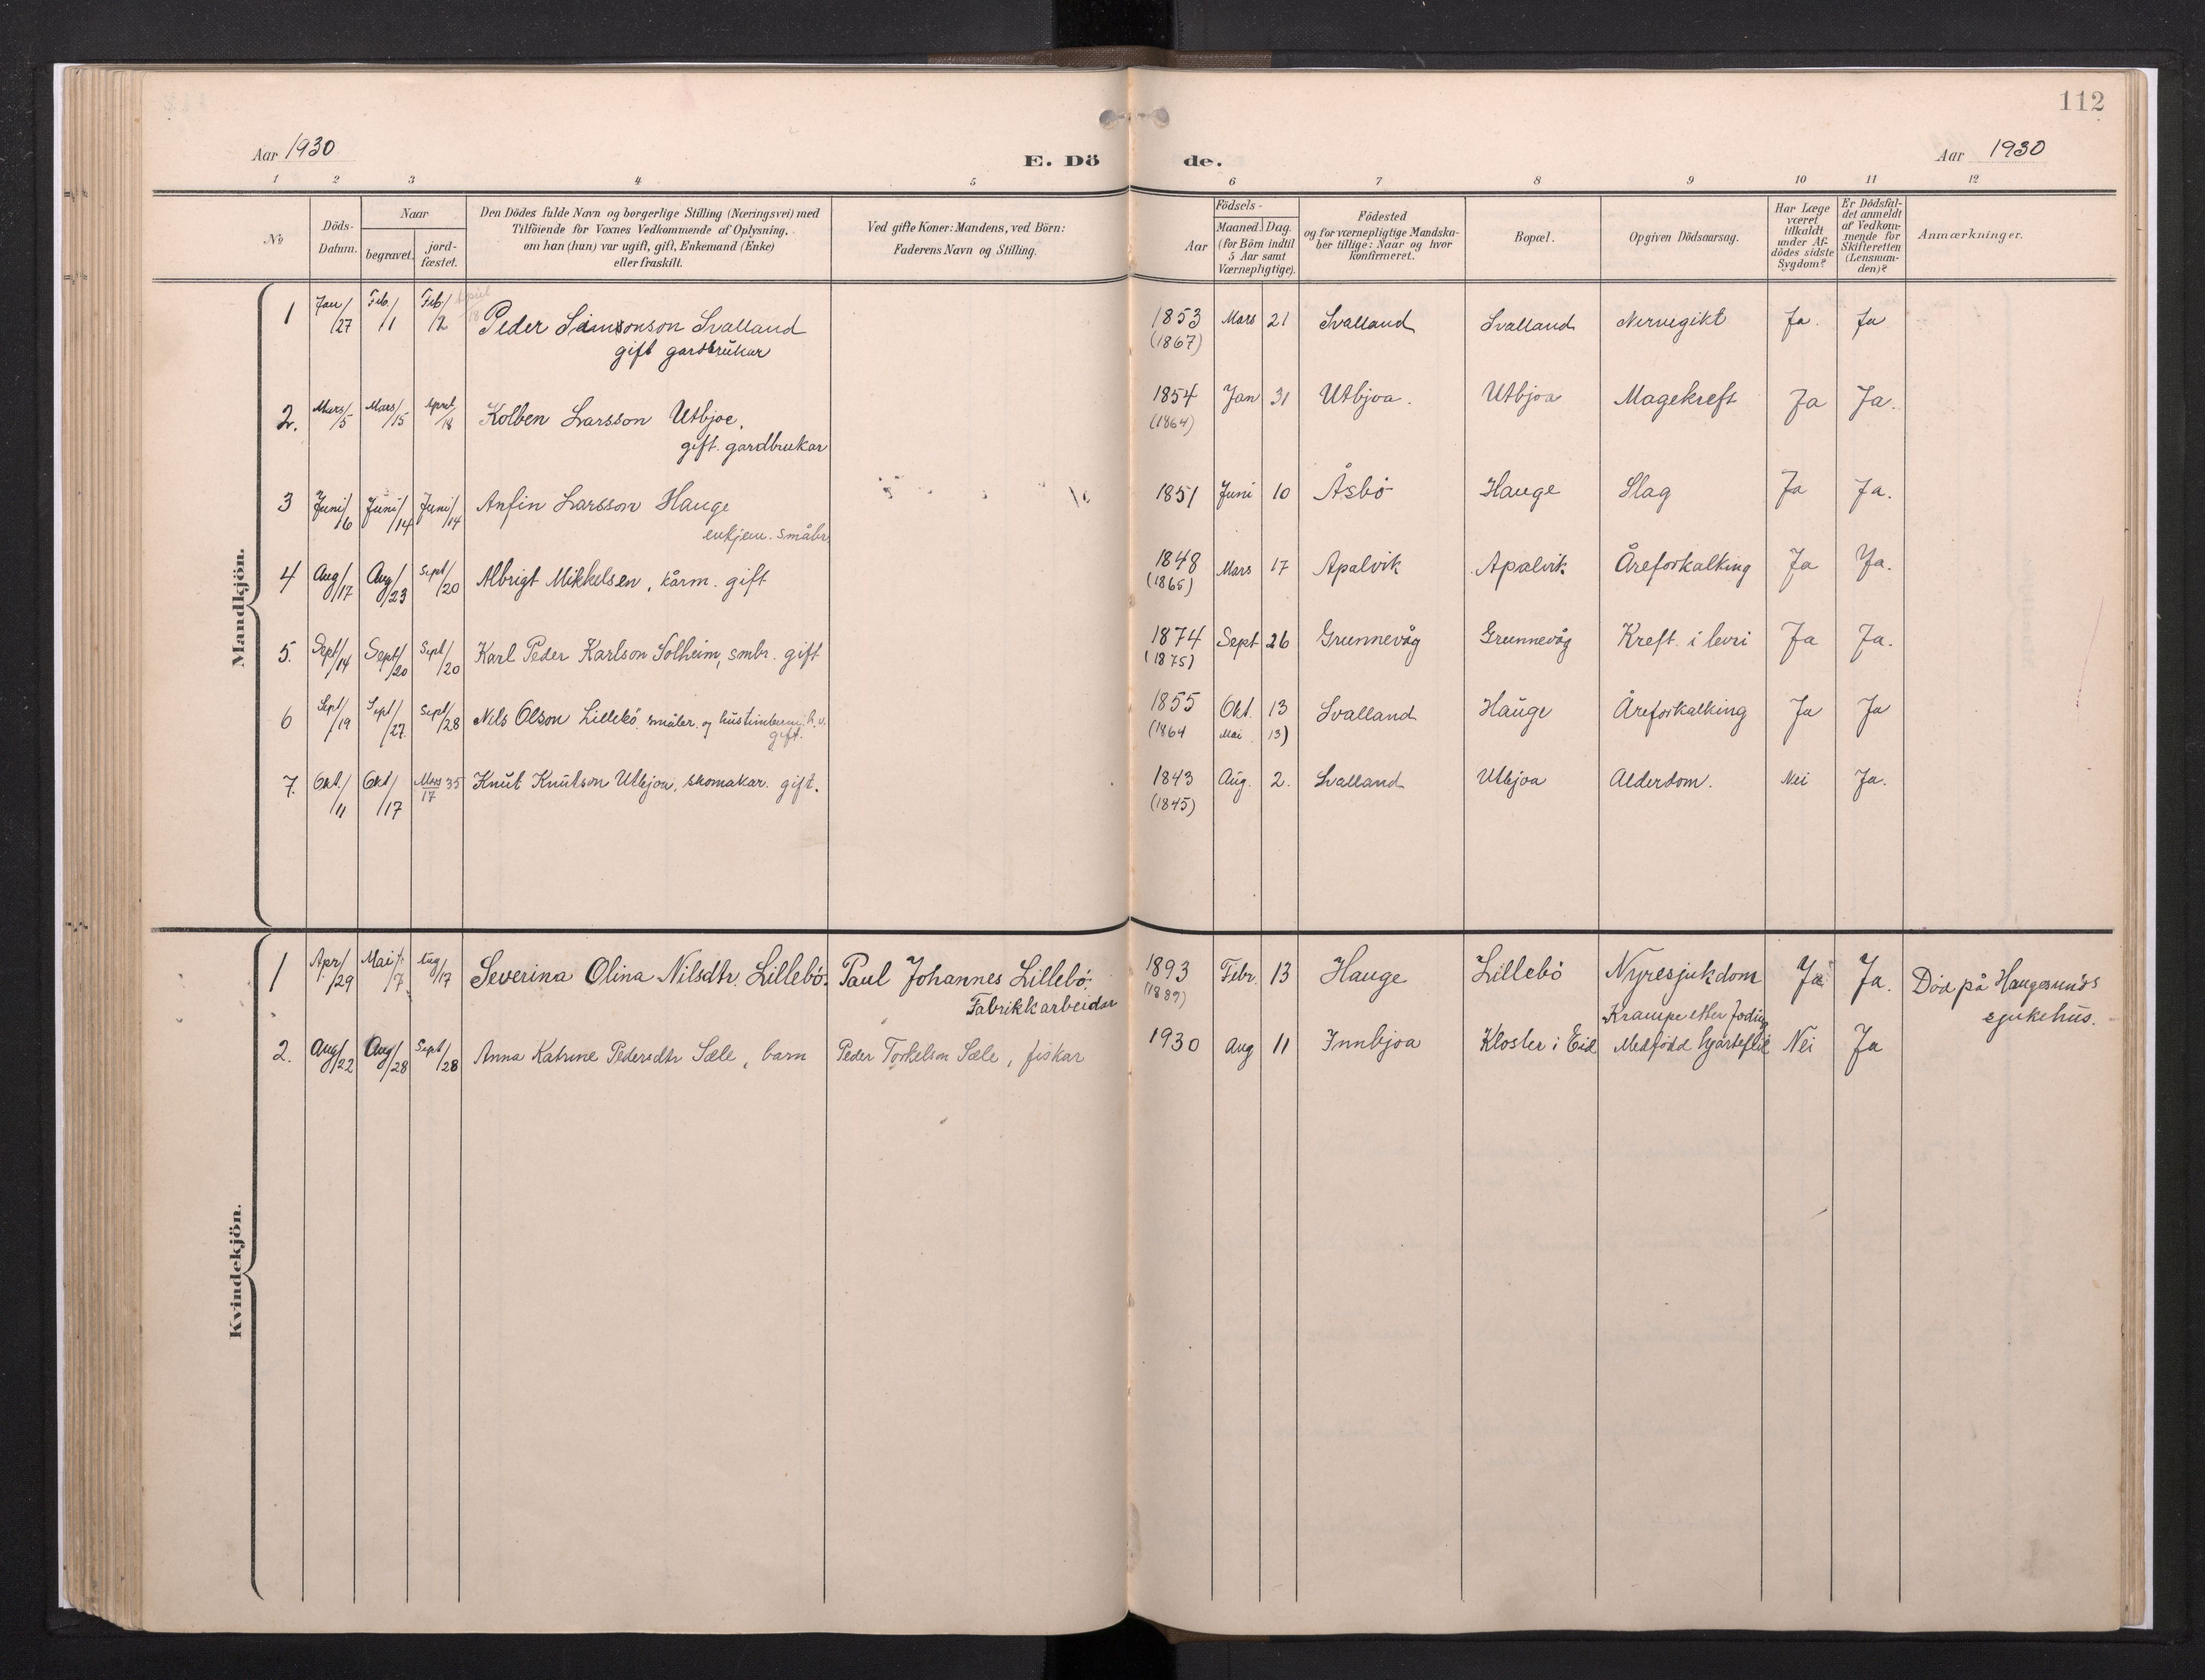 112
Aar 1930
E. Dö de.
Aar 1930
1 2 3 4 5 6 7 8 9 10 11 12
No
Döds-
Datum.
Naar
begravet.
jord-
fæstet.
Den Dödes fulde Navn og borgerlige Stilling (Næringsvei) med
Tilföiende for Voxnes Vedkommende af Oplysning,
om han (hun) var ugift, gift, Enkemand (Enke)
eller fraskilt.
Ved gifte Koner: Mandens, ved Börn:
Faderens Navn og Stilling.
Födsels-
Aar
Maaned.
Dag.
(for Börn indtil
5 Aar samt
Værnepligtige).
Födested
og for værnepligtige Mandska-
ber tillige: Naar og hvor
konfirmeret.
Bopæl.
Opgiven Dödsaarsag.
Har Læge
været
tilkaldt
under Af-
dödes sidste
Sygdom?
Er Dödsfal-
det anmeldt
af Vedkom-
mende for
Skifteretten
(Lensman-
den)?
Anmærkninger.
Mandkjön.
1 Jan/27 Feb./1 Feb/2 Peder Simsonson Svalland 1853 Mars 21 Svalland Svalland Nervegikt Ja. Ja
gift gardbrukar (1867)
2. Mars/5 Mars/15 April/18 Kolben Larsson Utbjoe. 1854 Jan 31 Utbjoa. Utbjoa Magekreft Ja Ja.
gift. gardbrukar (1864)
3 Juni/6 Juni/14 Juni/14 Anfin Larsson Hauge 1851 Juni 10 Åsbö Hauge Slag Ja Ja.
enkjem. småbr
4 Aug/17 Aug/23 Sept/20 Albrigt Mikkelsen, kårm. gift 1848 Mars 17 Apalvik Apalvik Åreforkalking Ja Ja.
(1865)
5. Sept/14 Sept/20 Sept/20 Karl Peder Karlson Solheim, smbr. gift 1874 Sept 26 Grunnevåg Grunnevåg Kreft i levri Ja Ja.
(1875)
6 Sept/19 Sept/27 Sept/28 Nils Olson Lillebö småbr. og hustimberm. 1855 Okt. 13 Svalland Hauge Åreforkalking Ja Ja
gift. (1864 Mai 13)
7. Okt./11 Okt/17 Mars 35/17 Knut Knutson Utbjoa, skomakar. gift. 1843 Aug. 2. Svalland Utbjoa Alderdom. Nei Ja.
(1845)
Kvindekjön.
1 Apr/29 Mai/7 Aug/17 Severina Olina Nilsdtr. Lillebö. Paul Johannes Lillebö. 1893 Febr. 13 Hauge Lillebö Nyresjukdom Ja Ja. Död på Haugesunds
Fabrikkarbeidar (1889) Krampe etter födsig sjukehus.
2. Aug/22 Aug/28 Sept/28 Anna Katrine Pedersdtr Sæle, barn Peder Torkelson Sæle, fiskar 1930 Aug 11 Innbjoa Kloster i Eid Medfödd hjartefeil Nei Ja